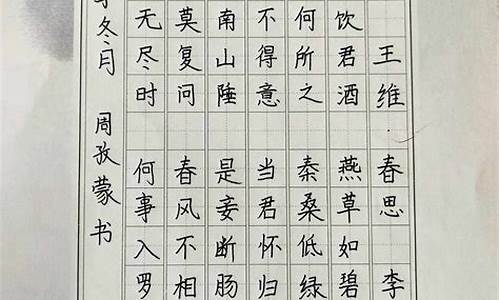 王维 春思 李
饮君酒 燕草如碧
何所之 秦桑低绿
不得意 当君怀归
南山陲 是妾断肠
莫复问 春风不相
无尽时 何事入罗
冬月 周孜蒙书